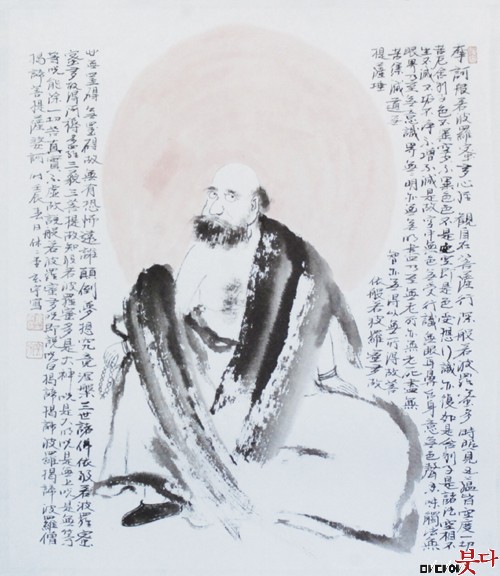 摩訶般若波羅蜜多心經 觀自在菩薩行深般若波羅蜜多時照見五蘊皆空度一切
苦厄舍利子色不異空空不異色色卽是空空卽是色受想行識亦復如是舍利子是諸法空相不
生不滅不垢不淨不增不減是故空中無色無受想行識無眼耳鼻舌身意無色聲香味觸法無
眼界乃至無意識界無無明亦無無明盡乃至無老死亦無老死盡無
苦集滅道無
智亦無得以無所得故菩
提薩埵
依般若波羅蜜多故
心無罣碍無罣碍故無有恐怖遠離顚倒夢想究竟涅槃三世諸佛依般若波羅蜜
多故得阿耨多羅三藐三菩提故知般若波羅蜜多是大神呪是大明呪是無上呪是無等
等呪能除一切苦眞實不虛故說般若波羅蜜多呪卽說呪曰揭諦揭諦波羅揭諦波羅僧
揭諦菩提薩婆訶 春日
마다야 붓다